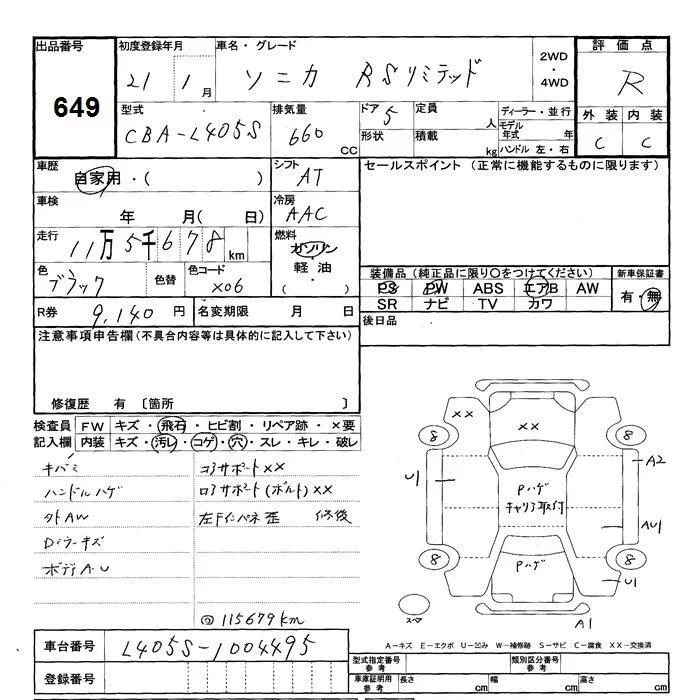 出品番号 初度登録年月 車名・グレード 2WD・4WD 評価点
649 21 1月 ソニカ RSリミテッド R
型式 排気量 ドア 定員 ディーラー・並行 外装 内装
CBA-L405S 660 CC 5 人 モデル年式 年 C C
形状 積載 kg ハンドル 左・右
車歴 シフト セールスポイント (正常に機能するものに限ります)
自家用・( ) AT
車検 冷房
年 月( 日) AAC
走行 燃料
11万5千678km ガソリン
軽油
( )
色 色替 色コード 装備品 (純正品に限り○をつけてください) 新車保証書
ブラック X06 PS PW ABS エアB AW 有・無
SR ナビ TV カワ
R券 9,140円 名変期限 月 日 後日品
注意事項申告欄 (不具合内容等は具体的に記入して下さい)
修復歴 有 〔箇所 〕
検査員 FW キズ・飛石・ヒビ割・リペア跡・×要
記入欄 内装 キズ・汚レ・コゲ・穴・スレ・キレ・破レ
キバミ コアサポートXX
ハンドルハゲ ロアサポート(ボルト)XX
外AW 左Fインパネ歪 修後
Dミラーキズ
ボディA・U
115679km
XX XX
8 8
A2
U1 Pハゲ
キャリア取付
AU1
8 Pハゲ 8
U1
スペア A1
A-キズ E-エクボ U-凹み W-補修跡 S-サビ C-腐食 XX-交換済
車台番号 L405S-1004495 型式指定番号 参考 類別区分番号 参考
登録番号 車庫証明用 参考 長さ cm 幅 cm 高さ cm